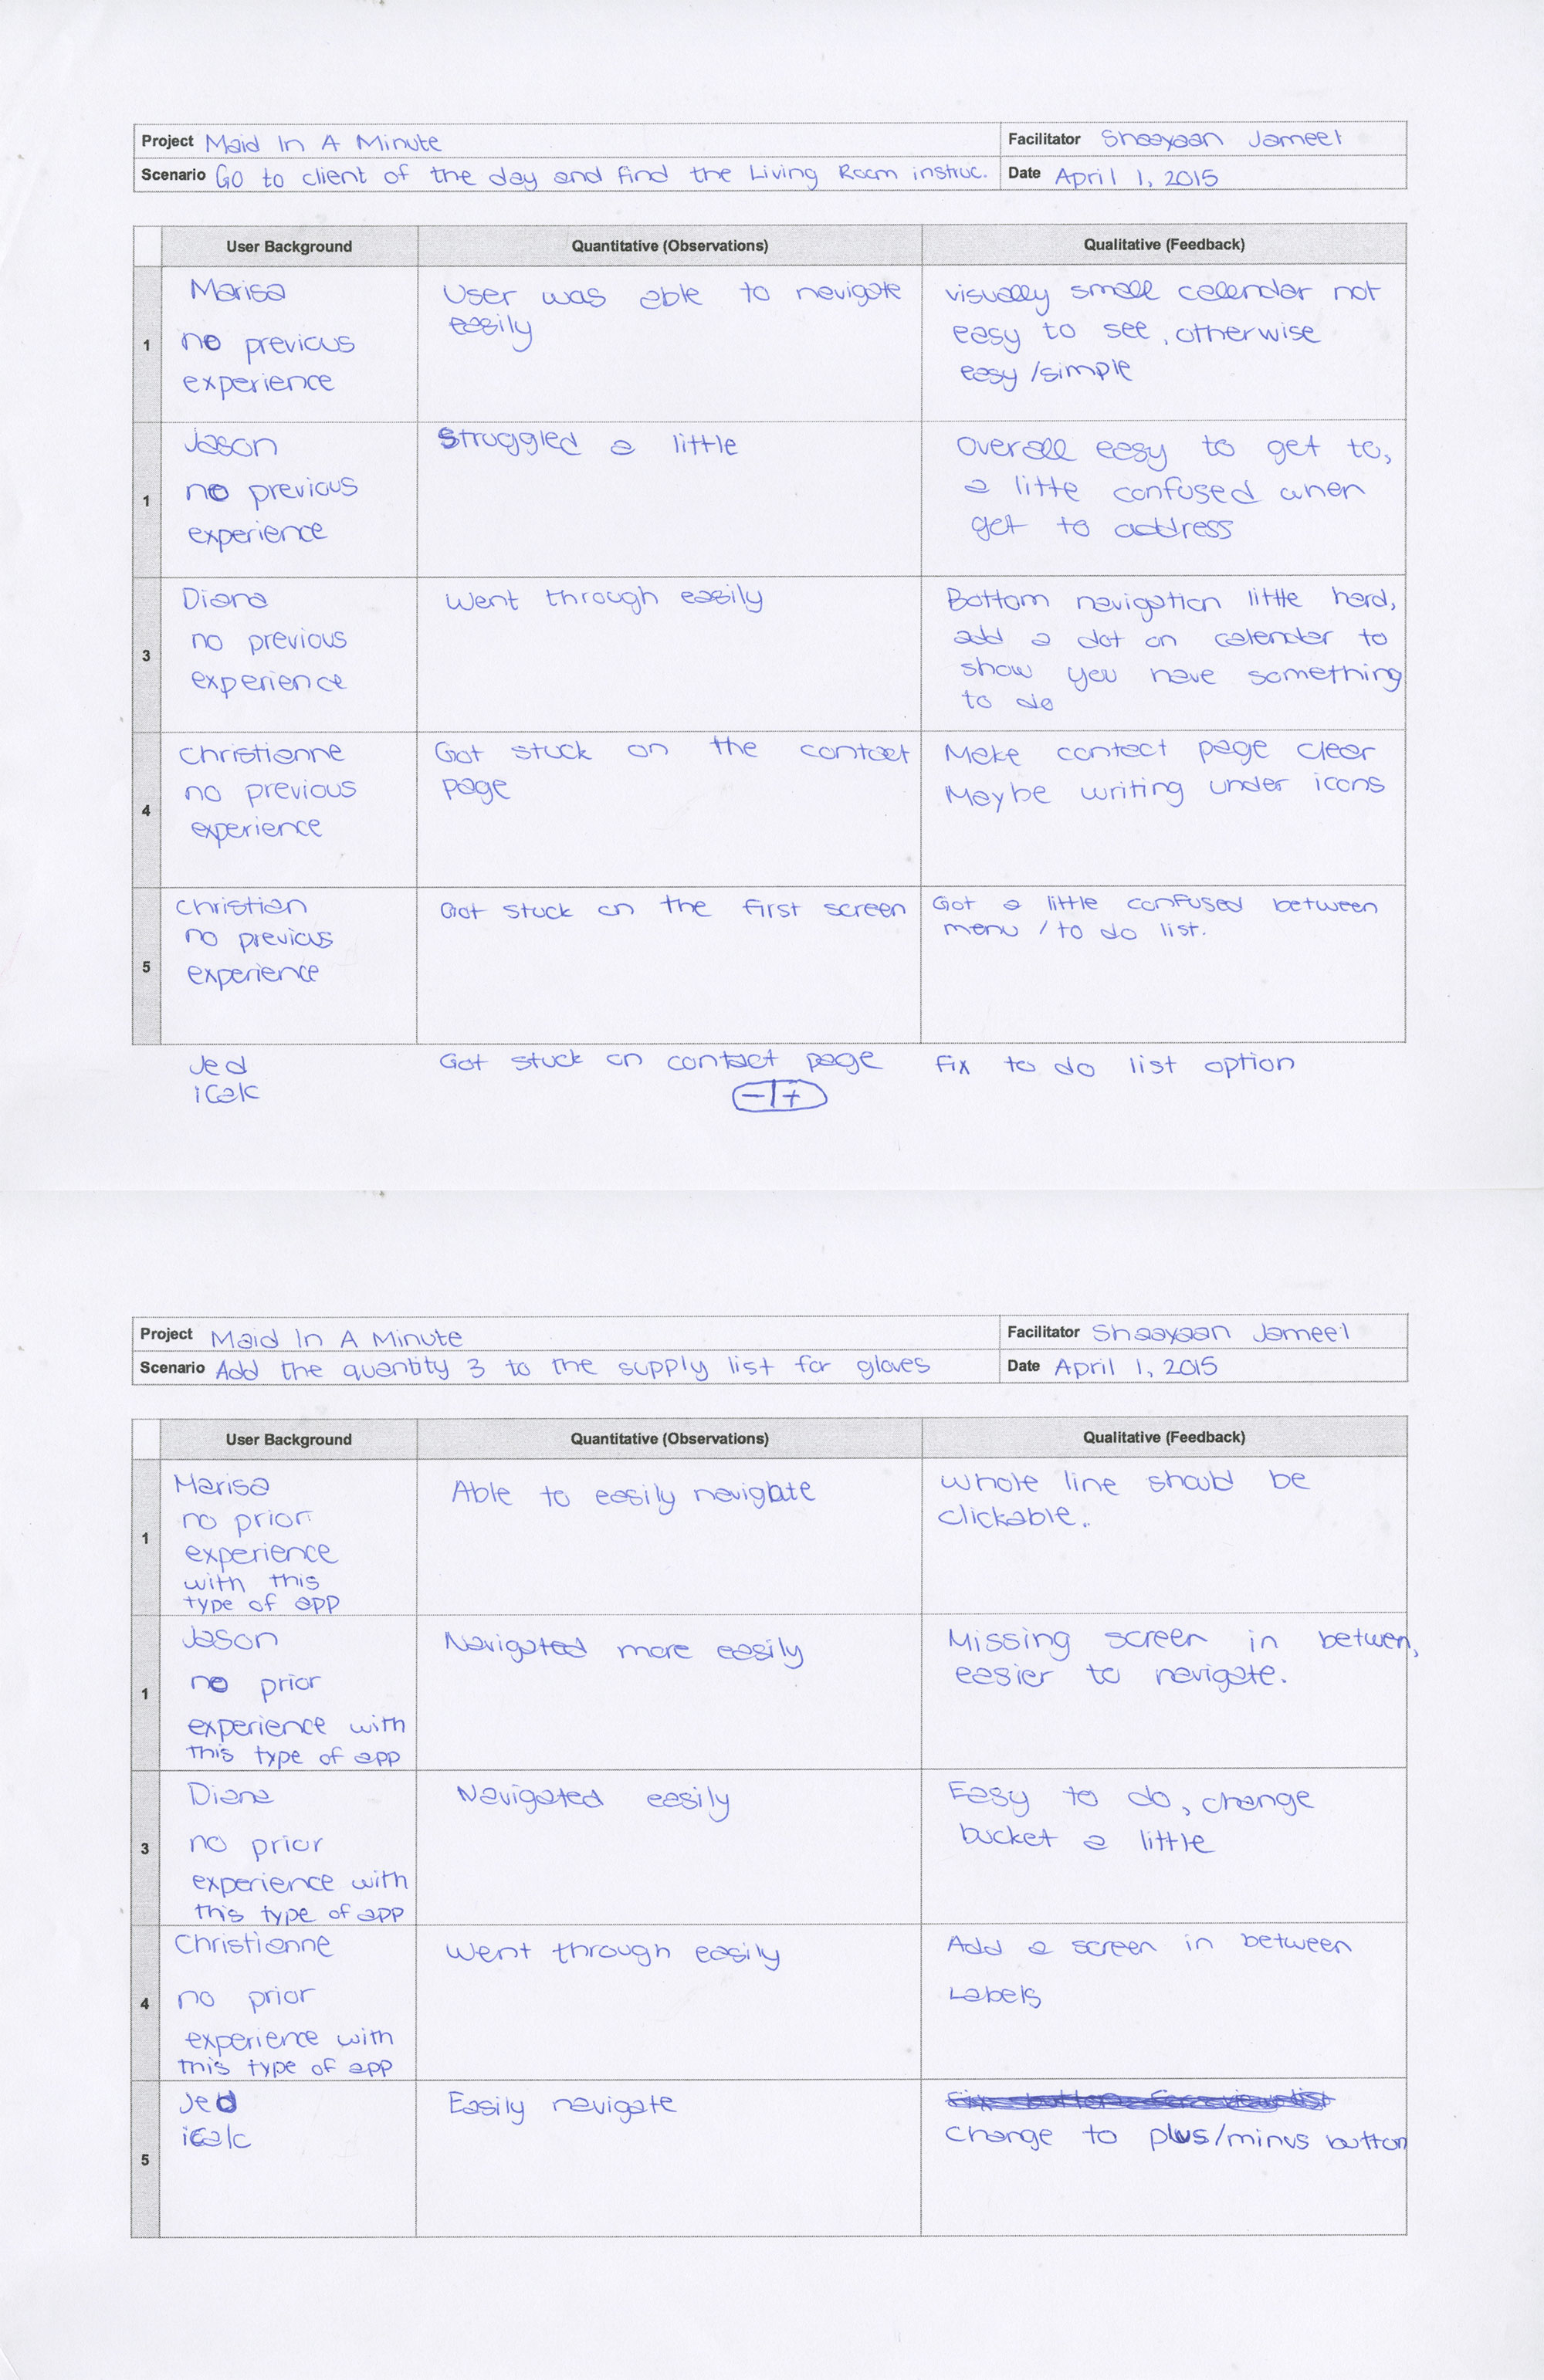 Project Maid In A Minute Facilitator Shaayaan Jameel
Scenario Go to client of the day and find the Living Room instruc. Date April 1, 2015
User Background Quantitative (Observations) Qualitative (Feedback)
1
Marisa
no previous
experience
User was able to navigate
easily
visually small calendar not
easy to see, otherwise
easy/simple
1
Jason
no previous
experience
Struggled a little
Overall easy to get to,
a little confused when
get to address
3
Diana
no previous
experience
Went through easily
Bottom navigation little hard,
add a dot on calender to
show you have something
to do
4
Christianne
no previous
experience
Got stuck on the contact
page
Make contact page clear
Maybe writing under icons
5
Christian
no previous
experience
Got stuck on the first screen
Got a little confused between
menu / to do list.
Jed
iCalc
Got stuck on contact page
-|+
Fix to do list option
Project Maid In A Minute Facilitator Shaayaan Jameel
Scenario Add the quantity 3 to the supply list for gloves Date April 1, 2015
User Background Quantitative (Observations) Qualitative (Feedback)
1
Marisa
no prior
experience
with this
type of app
Able to easily navigate
Whole line should be
clickable.
1
Jason
no prior
experience with
this type of app
Navigated more easily
Missing screen in betwen,
easier to navigate.
3
Diana
no prior
experience with
this type of app
Navigated easily
Easy to do, change
bucket a little
4
Christianne
no prior
experience with
this type of app
Went through easily
Add a screen in between
Labels
5
Jed
iCalc
Easily navigate
Change to plus/minus button